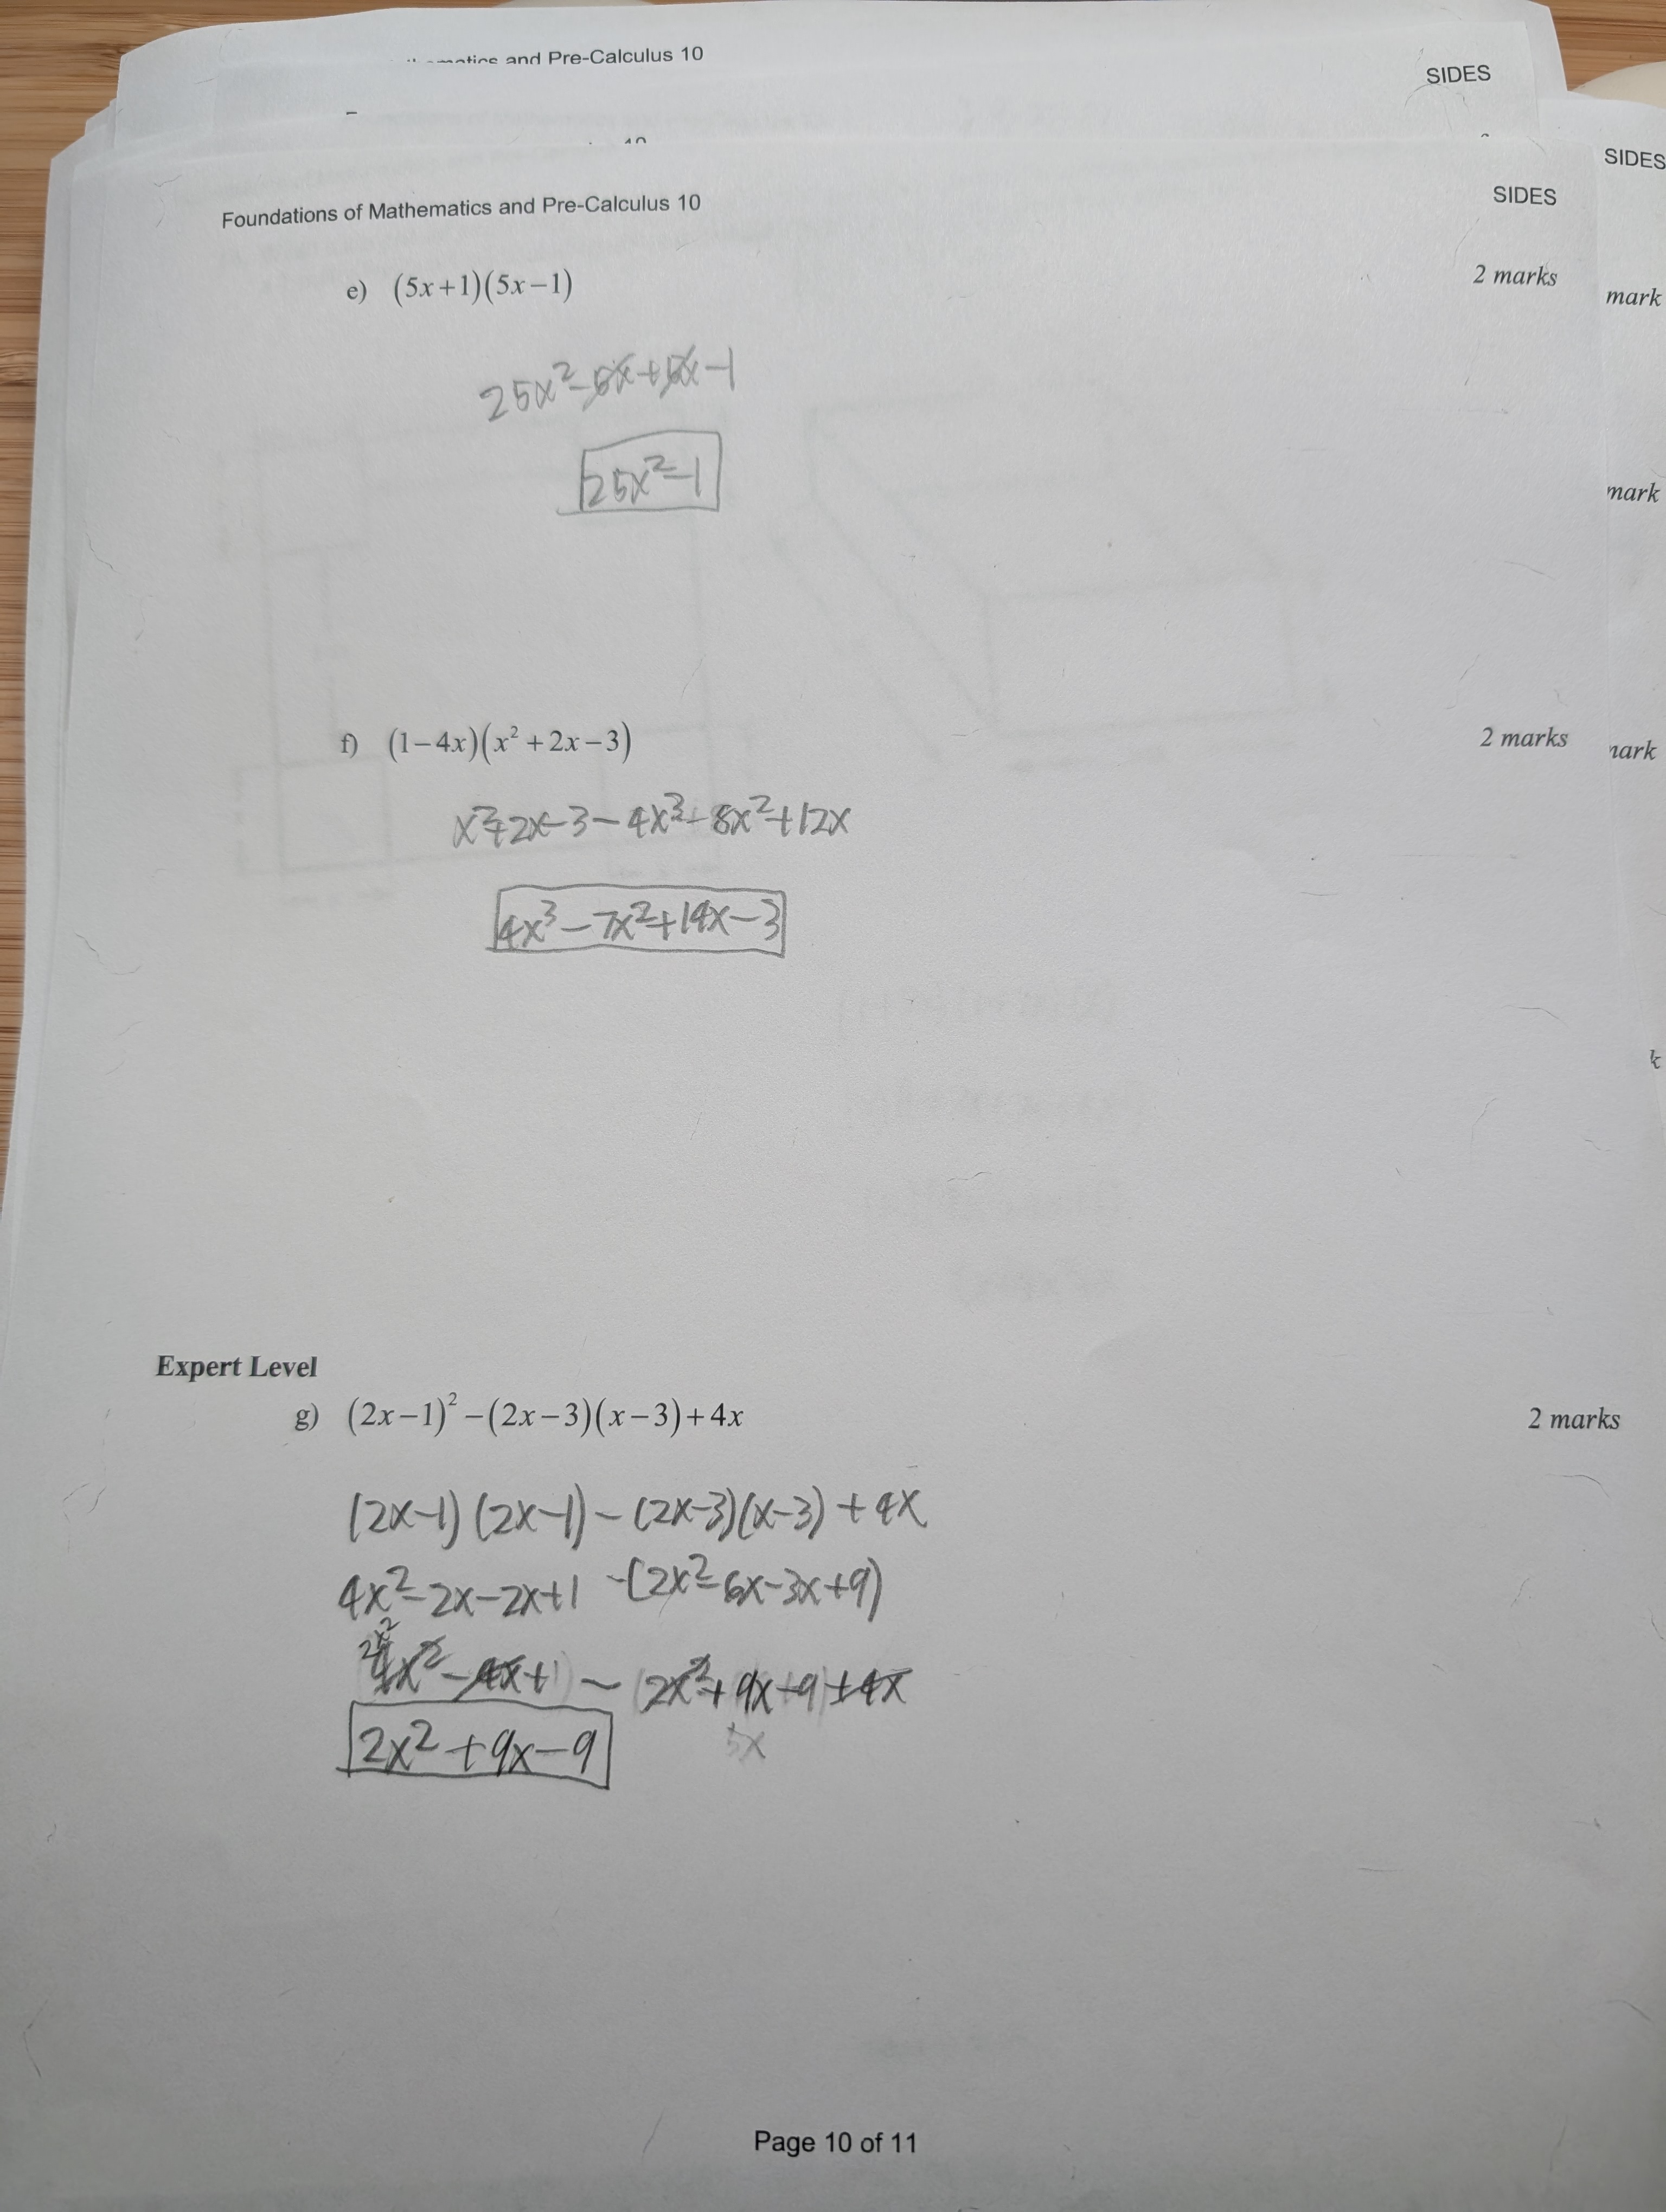 and Pre-Calculus 10
SIDES
SIDES
Foundations of Mathematics and Pre-Calculus 10
SIDES
e) (5x+1)(5x−1)
2 marks
mark
25x²−5x+5x−1
25x²−1
mark
f) (1−4x)(x²+2x−3)
2 marks
x²+2x−3−4x³−8x²+12x
4x³−7x²+14x−3
Expert Level
g) (2x−1)²−(2x−3)(x−3)+4x
2 marks
(2x−1)(2x−1)−(2x−3)(x−3)+4x
4x²−2x−2x+1 −(2x²−6x−3x+9)
4x²−4x+1)−(2x²+9x−9)+4x
5x
2x²+9x−9
Page 10 of 11